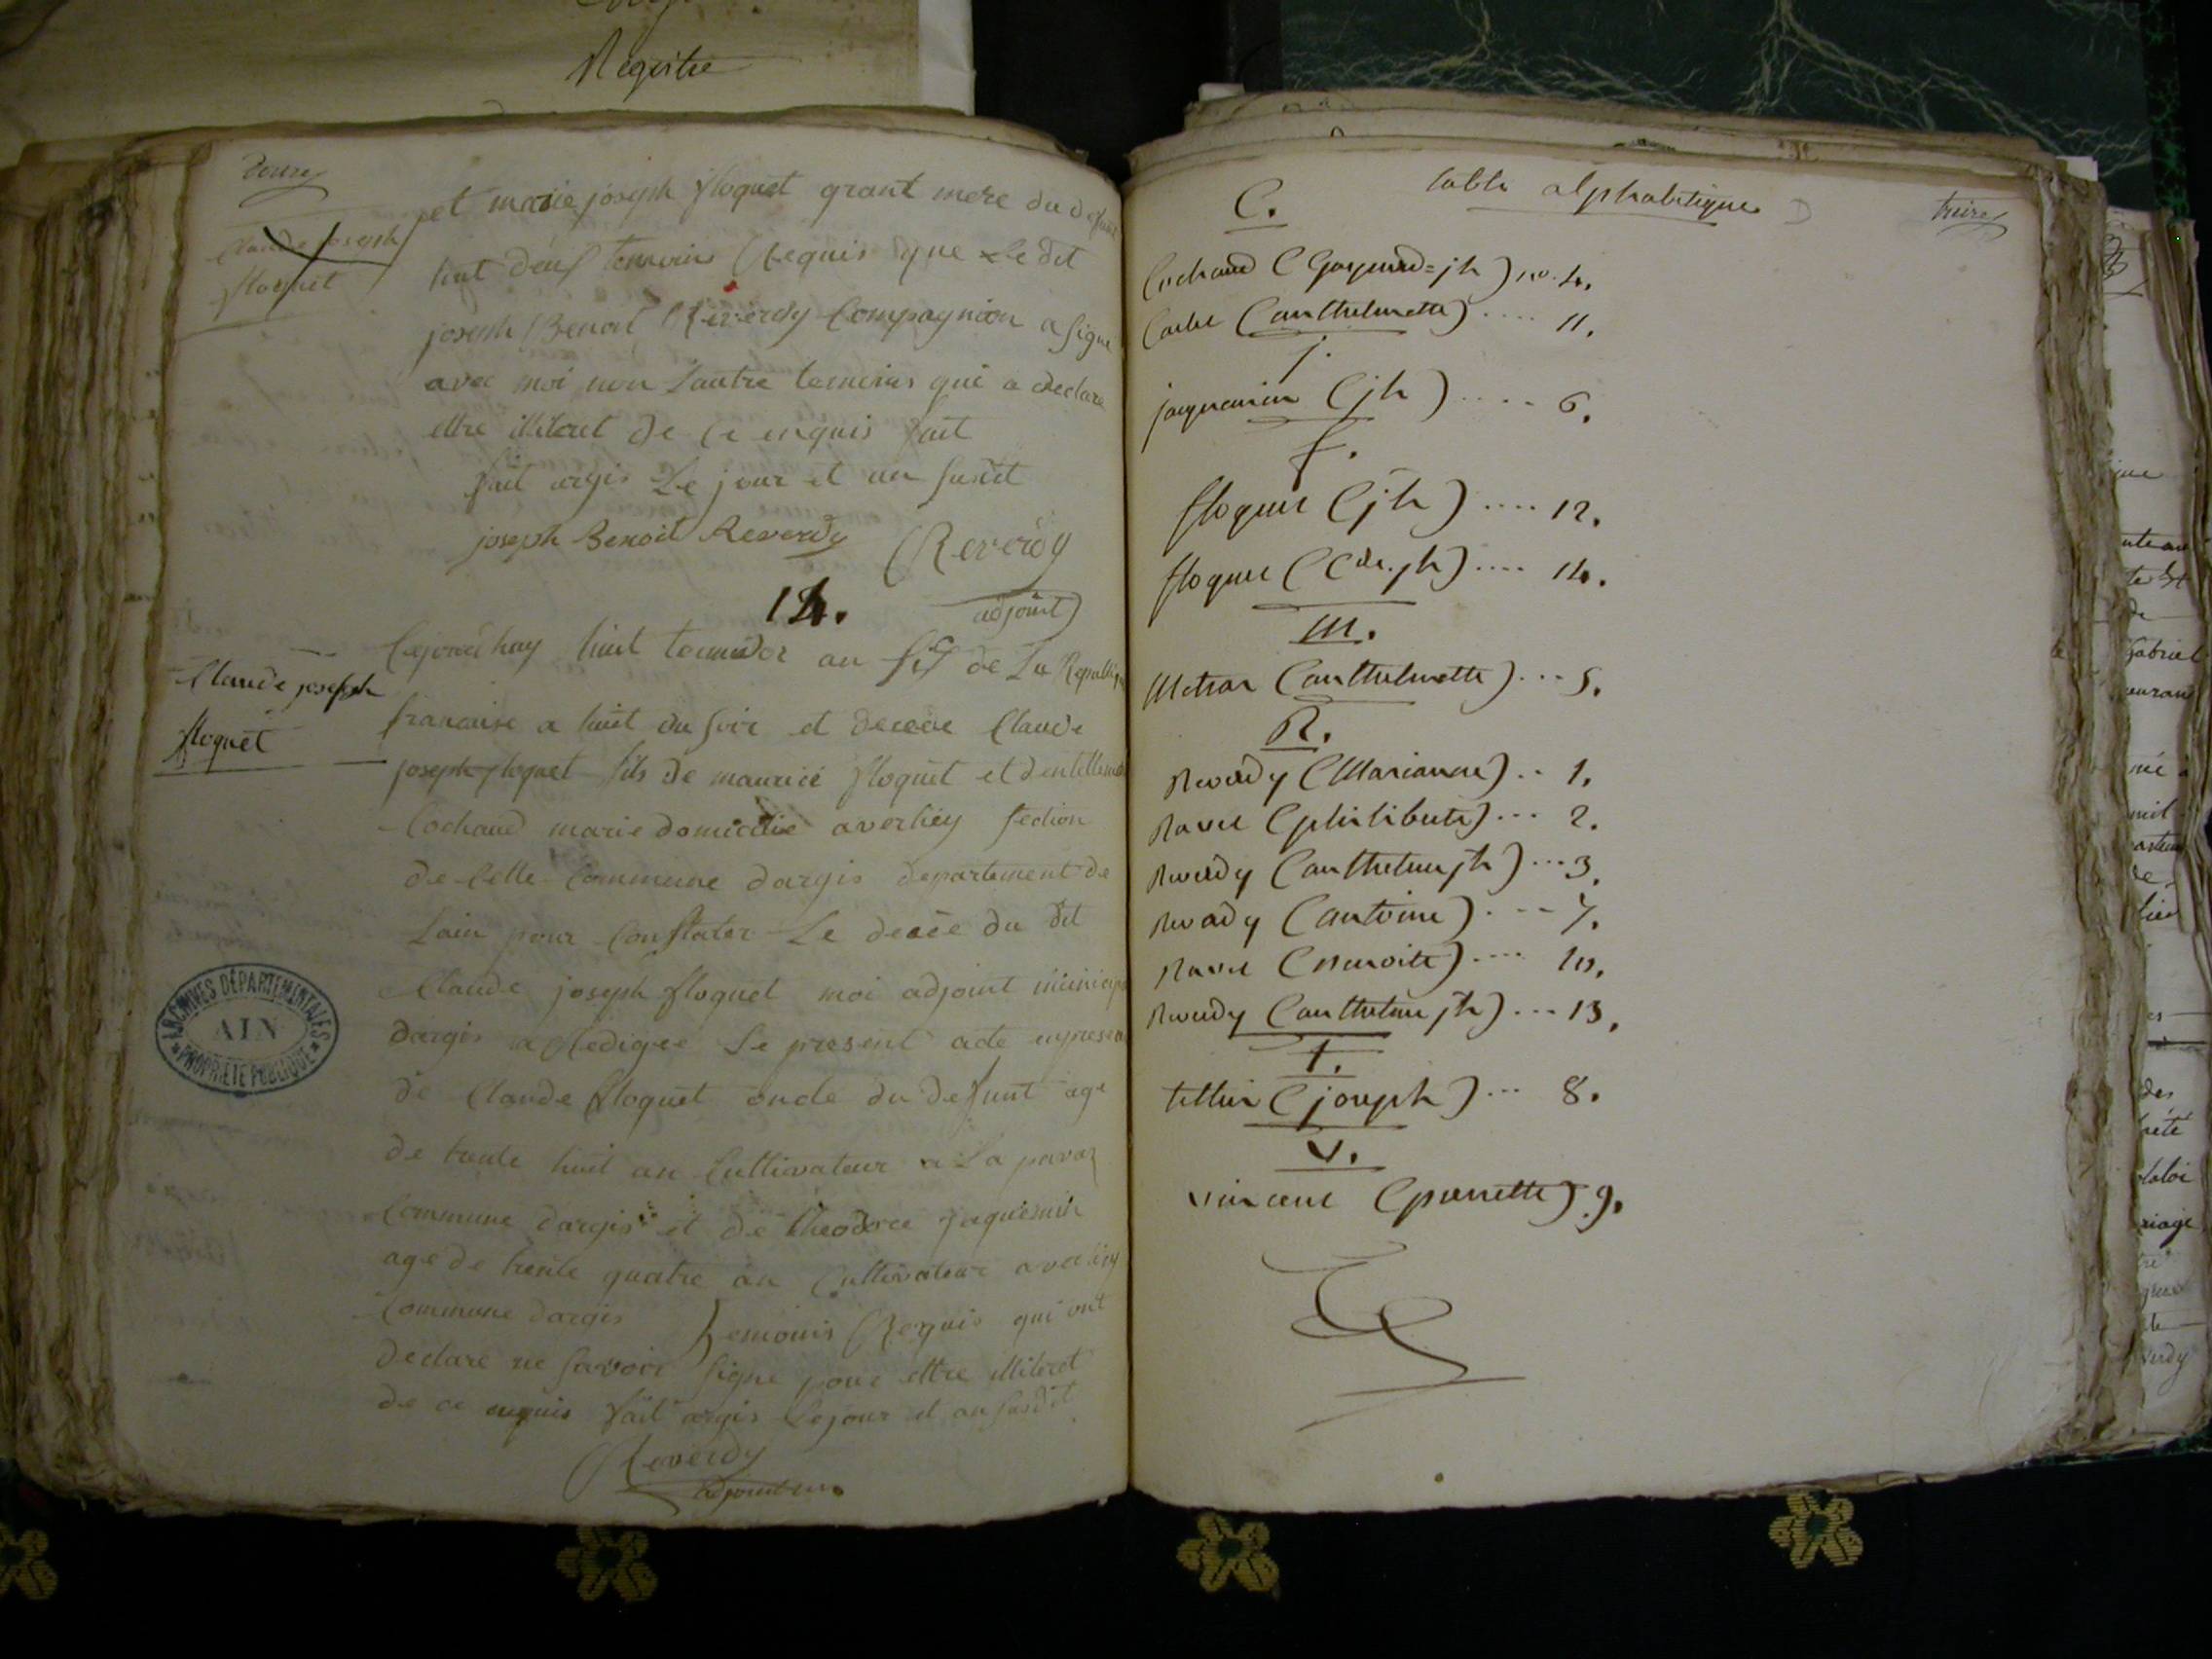 Registre
douze
Claude joseph
floquet
et marie joseph floquet grant mere du defunt
tout deus temoins Requis que le dit
joseph Benoit Reverdy Compagnion a signe
avec moi non Lautre temoins qui a declare
ettre illiteret de ce enquis fait
fait argis Le jour et an susdit
joseph Benoit Reverdy Reverdy
adjoint
14.
Claude joseph
floquet
Cejourdhuy huit termidor an six de La Republique
francaise a huit du soir et decede Claude
joseph floquet fils de maurice floquet et dentellemette
Cochand marie domicilie averliey section
de Celle Commune dargis departement de
Lain pour Constater Le decee du dit
Claude joseph floquet moi adjoint municipal
dargis a Redigee Le present acte enpresance
de Claude floquet oncle du defunt age
de trente huit an Cultivateur a La
Commune dargis et de theodore jaquemin
age de trente quatre an Cultivateur averliey
Commune dargis temoins Requis qui ont
declare ne savoir signe pour ettre illiteret
de ce enquis fait argis Lejour et an susdit
Reverdy
adjoint
ARCHIVES DÉPARTEMENTALES
AIN
PROPRIÉTÉ PUBLIQUE
table alphabétique
treize
C.
Cochand (Gaspard=jh) no. 4.
(anthelmette) .... 11.
j.
jaquemin (jh) .... 6.
f.
floquet (jh) .... 12.
floquet (Cde. jh) .... 14.
M.
(anthelmette) ... 5.
R.
Reverdy (Marianne) .. 1.
Ravet (philiberte) ... 2.
Reverdy (anthelme jh) ... 3.
Reverdy (antoine) ... 7.
Ravet (benoite) .... 10.
Reverdy (anthelme jh) ... 13.
T.
(joseph) ... 8.
V.
vincent (pierrette) . 9.